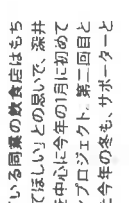 いる同業の飲食店はもち
てほしい」との思いで、深井
を中心に今年の1月に初めて
プロジェクト。第二回目と
今年の冬も、サポーターと